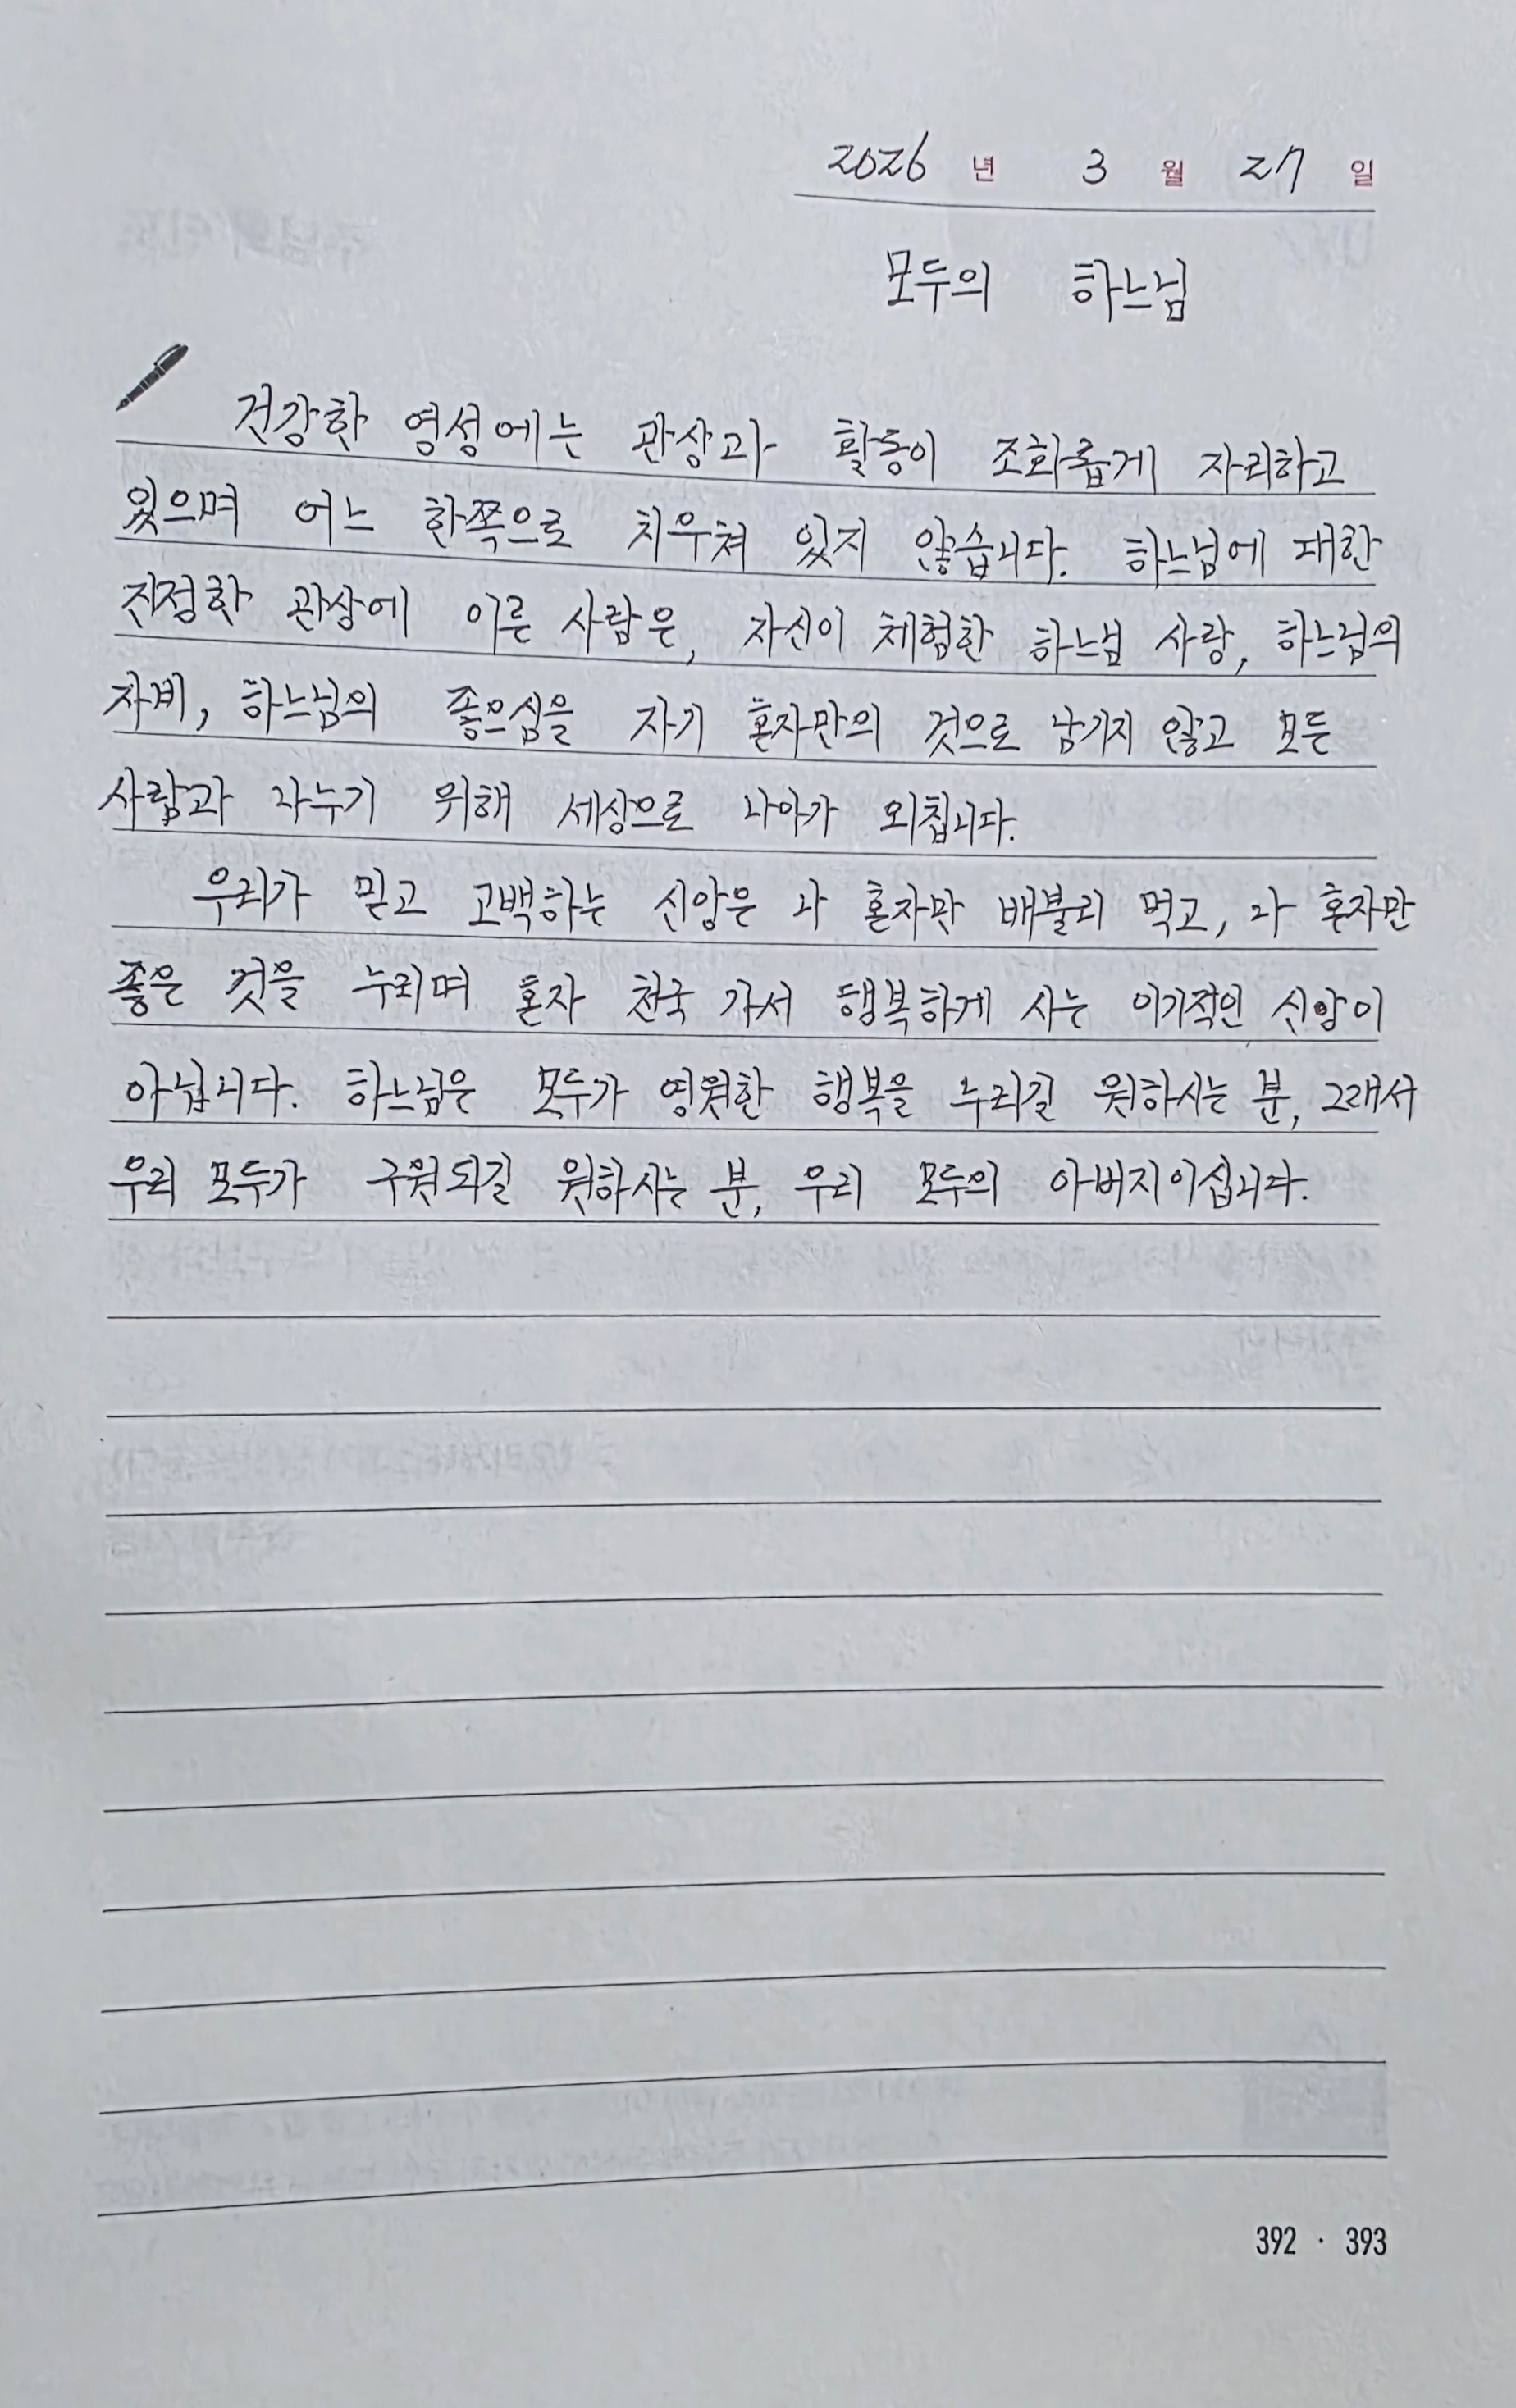 2026 년 3 월 27 일
모두의 하느님
건강한 영성에는 관상과 활동이 조화롭게 자리하고
있으며 어느 한쪽으로 치우쳐 있지 않습니다. 하느님에 대한
진정한 관상에 이른 사람은, 자신이 체험한 하느님 사랑, 하느님의
자비, 하느님의 좋으심을 자기 혼자만의 것으로 남기지 않고 모든
사람과 나누기 위해 세상으로 나아가 외칩니다.
우리가 믿고 고백하는 신앙은 나 혼자만 배불리 먹고, 나 혼자만
좋은 것을 누리며 혼자 천국 가서 행복하게 사는 이기적인 신앙이
아닙니다. 하느님은 모두가 영원한 행복을 누리길 원하시는 분, 그래서
우리 모두가 구원되길 원하시는 분, 우리 모두의 아버지이십니다.
392 · 393